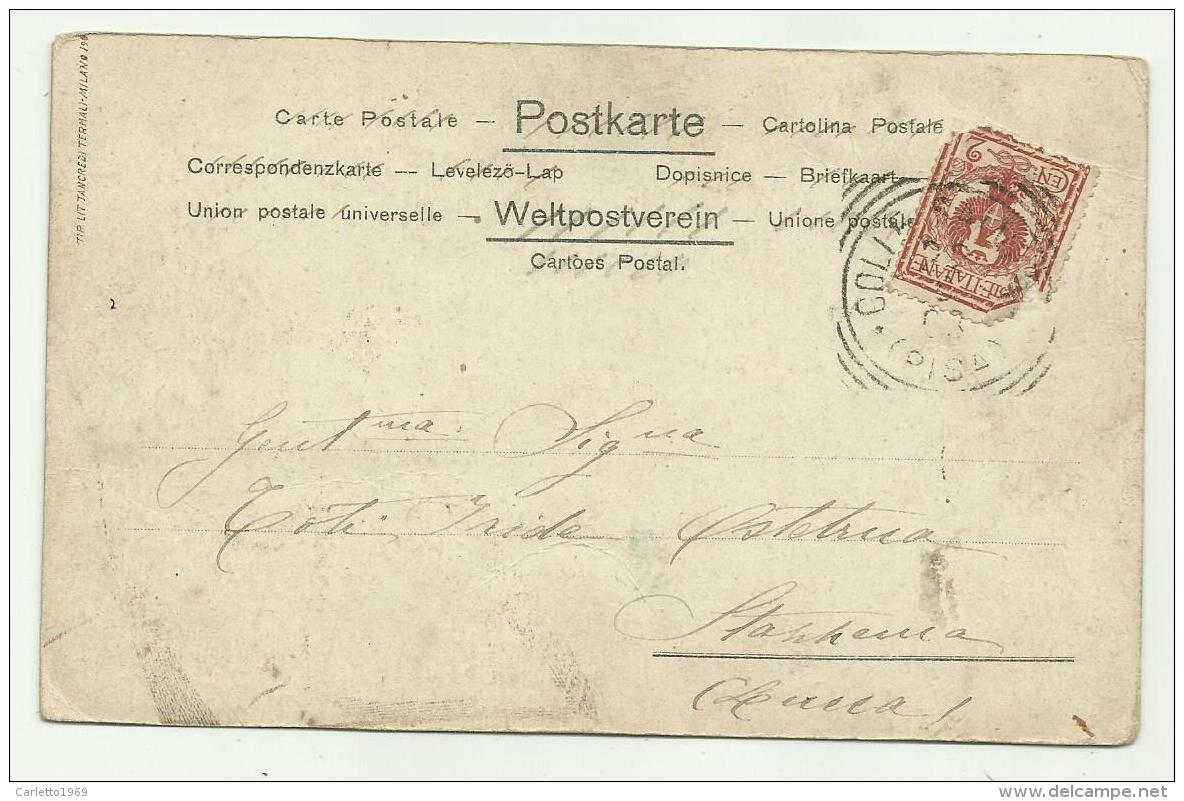 TIP. LIT. TANCREDI TERMALI-MILANO 190
Carte Postale — Postkarte — Cartolina Postale
Correspondenzkarte — Levelezö-Lap Dopisnice — Briefkaart
Union postale universelle — Weltpostverein — Unione postale
Cartões Postal.
2
(PISA)
Gent ma. Sig na
Toti Iride Ostetrica
Stazzema
(Lucca)
Carletto1969
delcampe.net